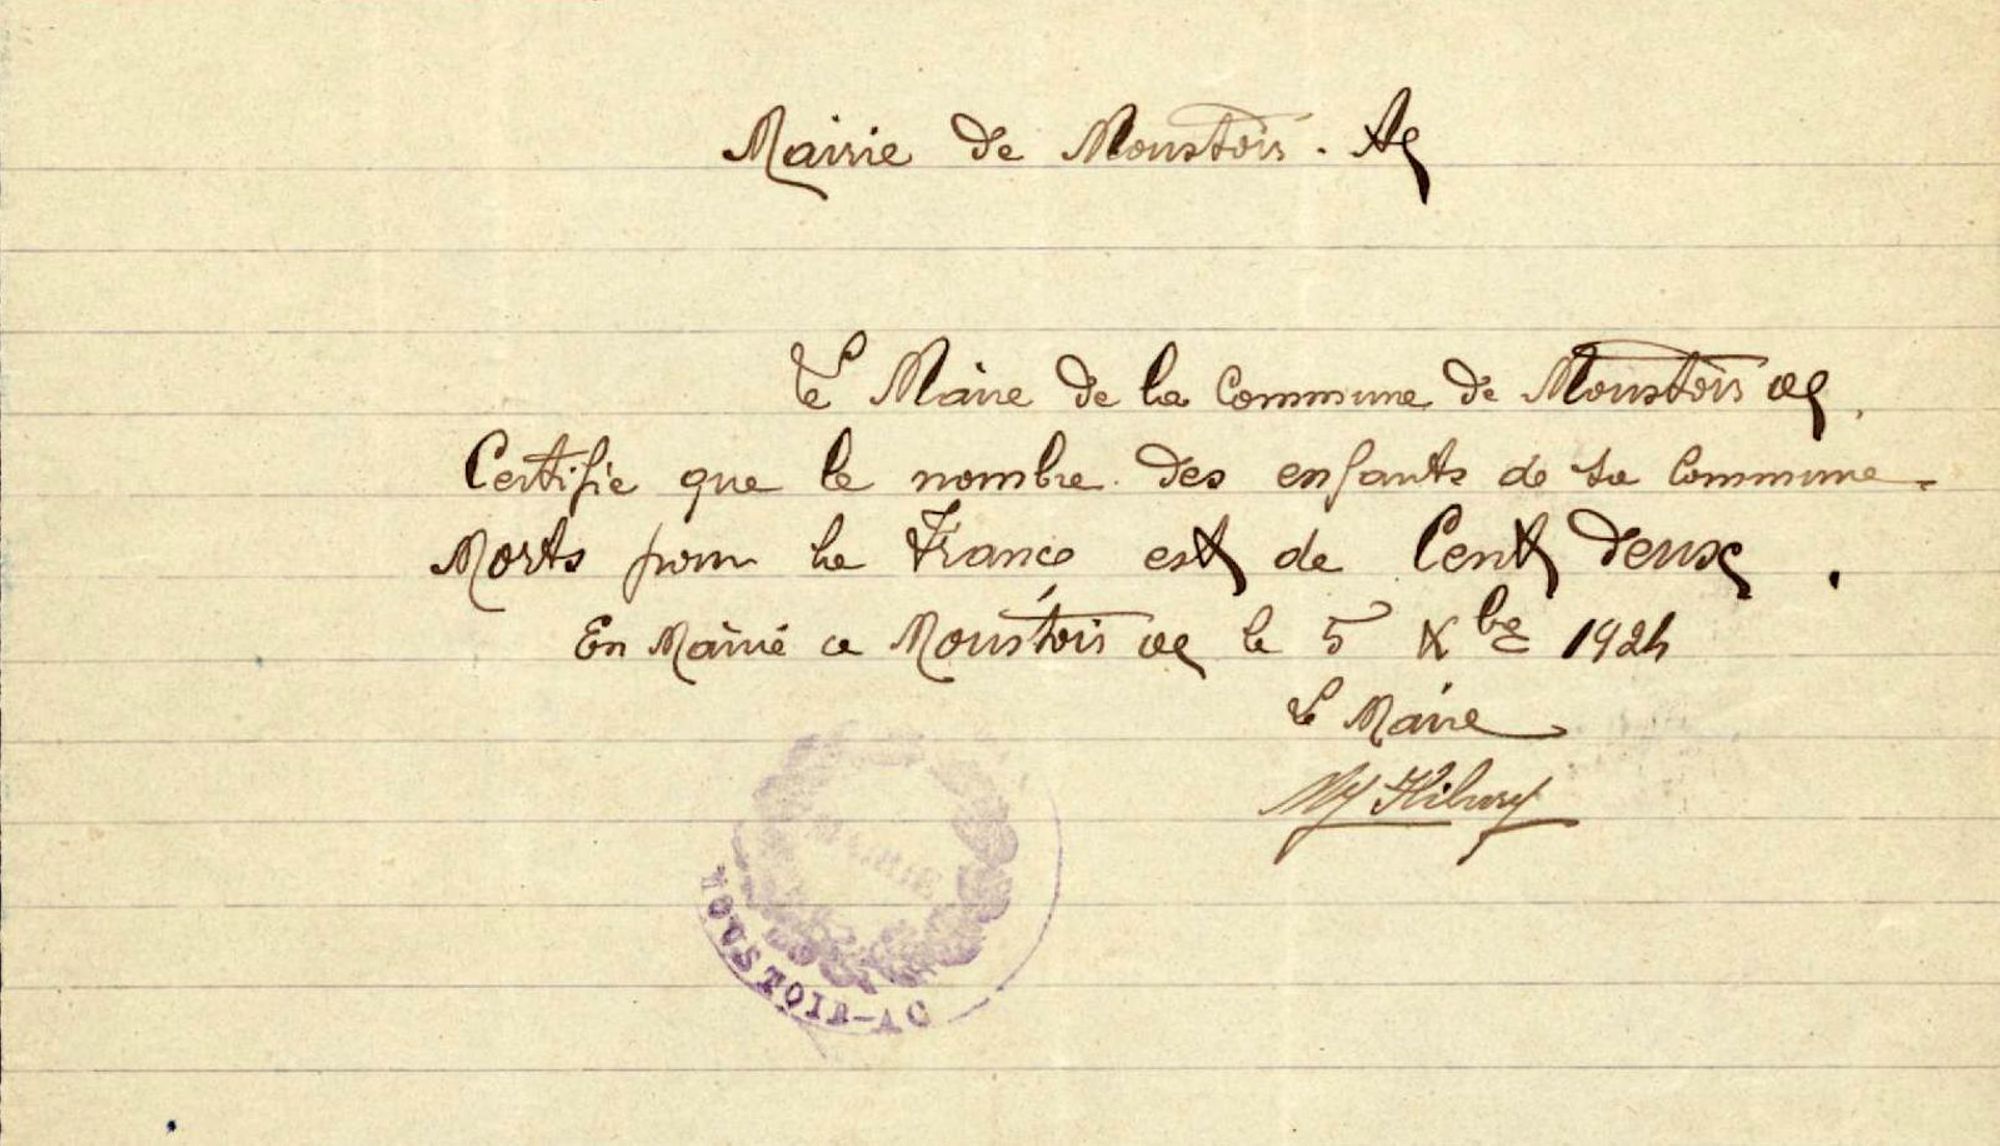 Mairie de Moustoir. Ac
Le Maire de la Commune de Moustoir ac
Certifie que le nombre des enfants de sa Commune
Morts pour la France est de Cent Deux.
En Mairie a Moustoir ac le 5 Xbre 1924
Le Maire
MOUSTOIR-AC